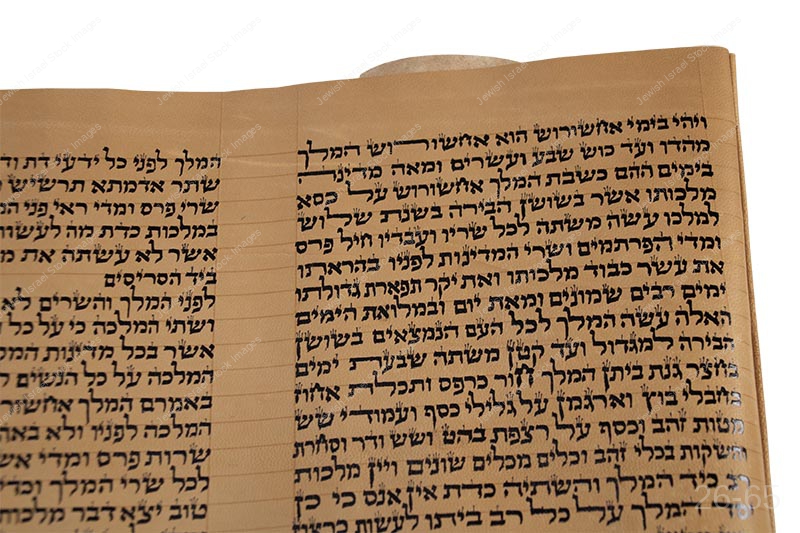 ויהי בימי אחשורוש הוא אחשורוש המלך
מהדו ועד כוש שבע ועשרים ומאה מדינה
בימים ההם כשבת המלך אחשורוש על כסא
מלכותו אשר בשושן הבירה בשנת שלוש
למלכו עשה משתה לכל שריו ועבדיו חיל פרס
ומדי הפרתמים ושרי המדינות לפניו בהראתו
את עשר כבוד מלכותו ואת יקר תפארת גדולתו
ימים רבים שמונים ומאת יום ובמלואת הימים
האלה עשה המלך לכל העם הנמצאים בשושן
הבירה למגדול ועד קטן משתה שבעת ימים
בחצר גנת ביתן המלך חור כרפס ותכלת אחוז
בחבלי בוץ וארגמן על גלילי כסף ועמודי שש
מטות זהב וכסף על רצפת בהט ושש ודר וסחרת
והשקות בכלי זהב וכלים מכלים שונים ויין מלכות
רב כיד המלך והשתיה כדת אין אנס כי כן
יסד המלך על כל רב ביתו לעשות כרצון
המלך לפני כל ידעי דת וד
שתר אדמתא תרשיש
שרי פרס ומדי ראי פני המ
במלכות כדת מה לעשות
אשר לא עשתה את מ
ביד הסריסים
לפני המלך והשרים לא
ושתי המלכה כי על כל
אשר בכל מדינות המל
המלכה על כל הנשים ל
באמרם המלך אחשור
המלכה לפניו ולא באה
שרות פרס ומדי אש
לכל שרי המלך וכדי
טוב יצא דבר מלכות
Jewish Israel Stock Images
26-65